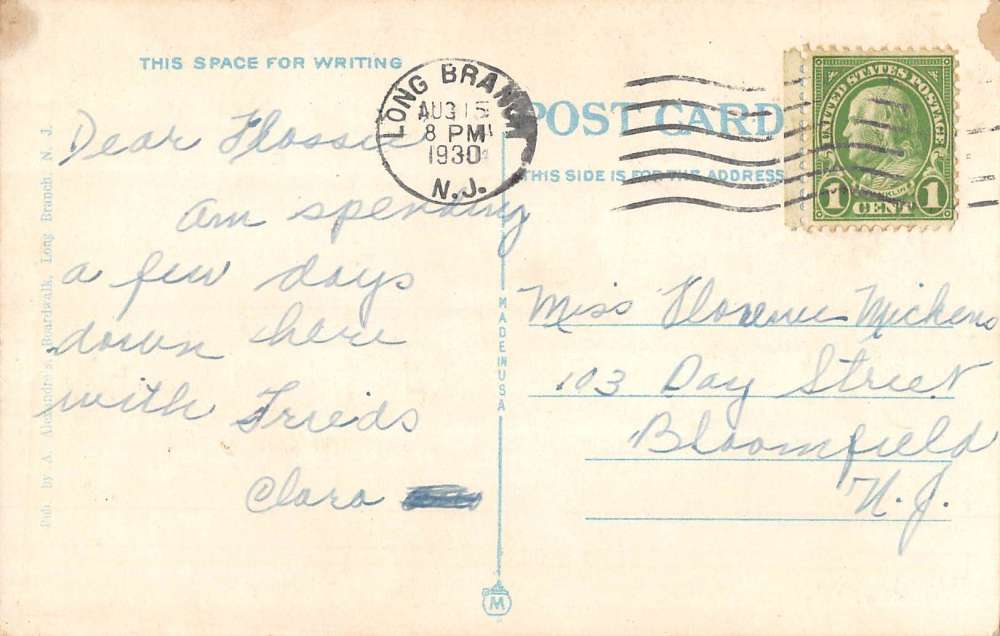 THIS SPACE FOR WRITING
Dear Flossie
Am spending
a few days
down here
with Frieds
Clara
Pub. by A. Alexandres, Boardwalk, Long Branch, N. J.
LONG BRANCH
AUG 15
8 PM
1930
N.J.
POST CARD
THIS SIDE IS FOR THE ADDRESS
UNITED STATES POSTAGE
FRANKLIN
1 CENT 1
MADE IN USA
Miss Florence Mickens
103 Day Street
Bloomfield
N. J.
M